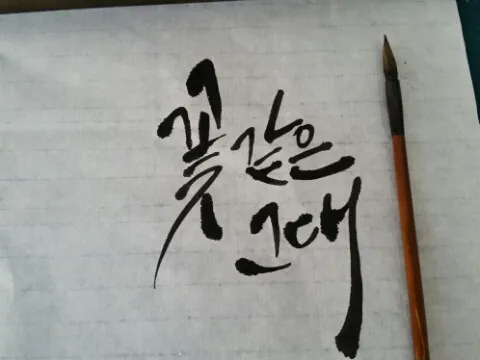 꽃 같은
그대